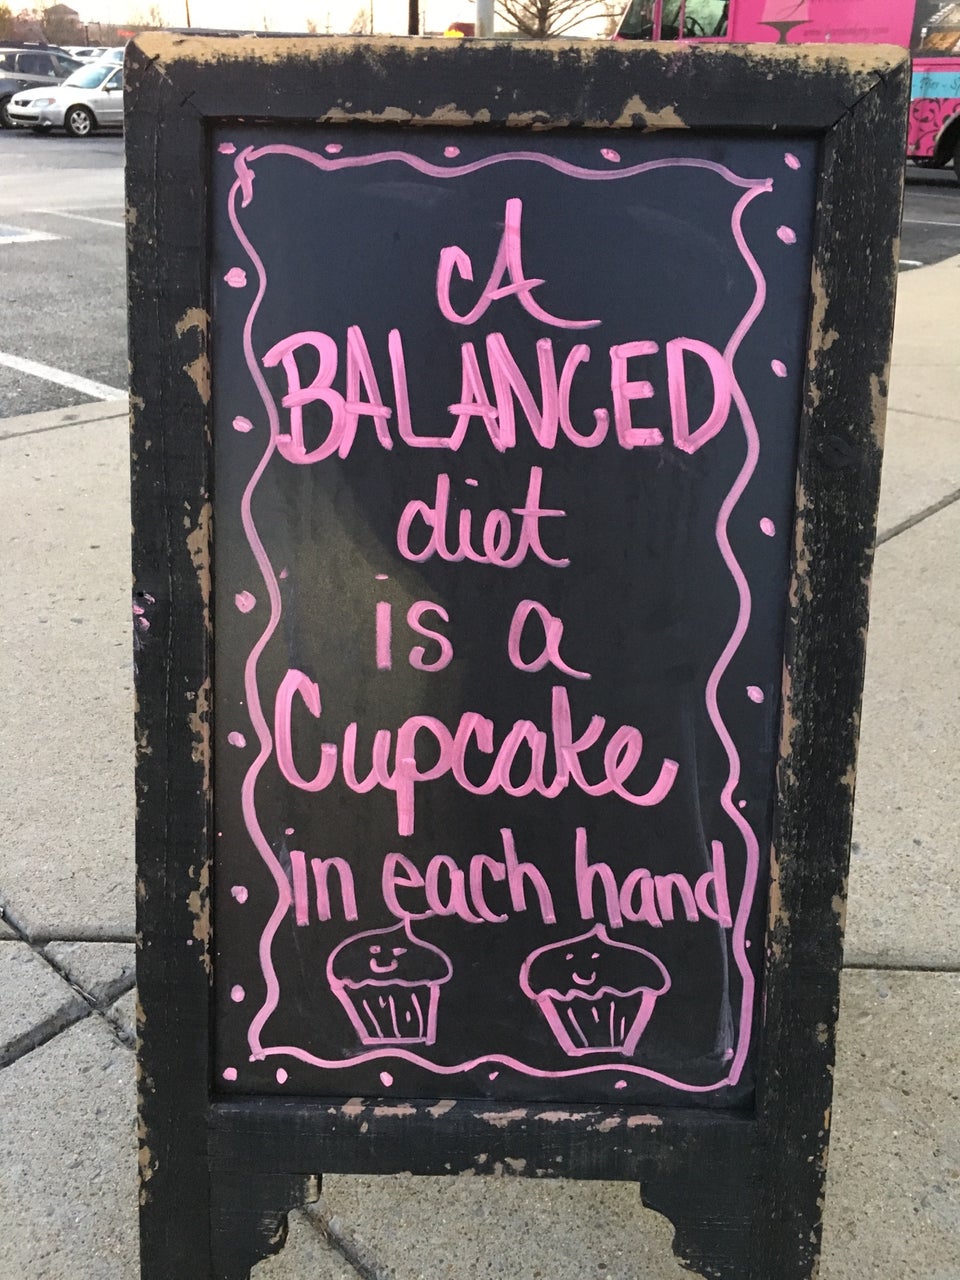 A
BALANCED
diet
is a
Cupcake
in each hand